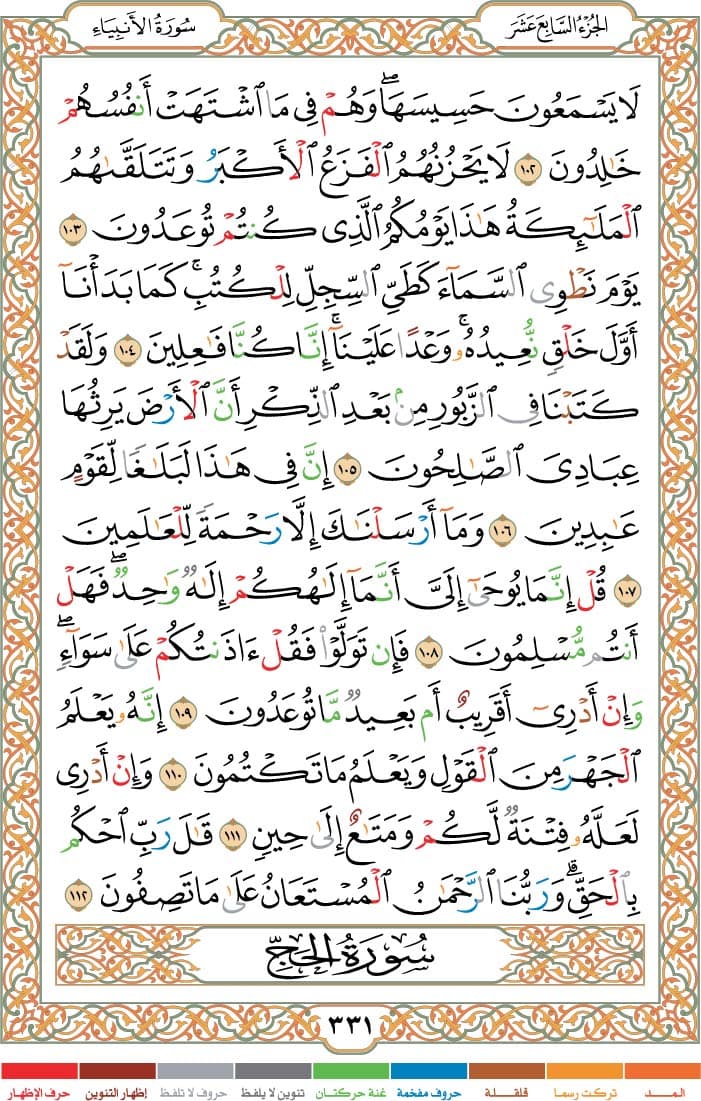 سُورَةُ الأَنبِيَاء
الجُزْءُ السَّابِعَ عَشَرَ
لَا يَسْمَعُونَ حَسِيسَهَا ۖ وَهُمْ فِى مَا ٱشْتَهَتْ أَنفُسُهُمْ
خَٰلِدُونَ ١٠٢ لَا يَحْزُنُهُمُ ٱلْفَزَعُ ٱلْأَكْبَرُ وَتَتَلَقَّىٰهُمُ
ٱلْمَلَٰٓئِكَةُ هَٰذَا يَوْمُكُمُ ٱلَّذِى كُنتُمْ تُوعَدُونَ ١٠٣
يَوْمَ نَطْوِى ٱلسَّمَآءَ كَطَىِّ ٱلسِّجِلِّ لِلْكُتُبِ ۚ كَمَا بَدَأْنَآ
أَوَّلَ خَلْقٍ نُّعِيدُهُۥ ۚ وَعْدًا عَلَيْنَآ ۚ إِنَّا كُنَّا فَٰعِلِينَ ١٠٤ وَلَقَدْ
كَتَبْنَا فِى ٱلزَّبُورِ مِنۢ بَعْدِ ٱلذِّكْرِ أَنَّ ٱلْأَرْضَ يَرِثُهَا
عِبَادِىَ ٱلصَّٰلِحُونَ ١٠٥ إِنَّ فِى هَٰذَا لَبَلَٰغًا لِّقَوْمٍ
عَٰبِدِينَ ١٠٦ وَمَآ أَرْسَلْنَٰكَ إِلَّا رَحْمَةً لِّلْعَٰلَمِينَ
١٠٧ قُلْ إِنَّمَا يُوحَىٰٓ إِلَىَّ أَنَّمَآ إِلَٰهُكُمْ إِلَٰهٌ وَٰحِدٌ ۖ فَهَلْ
أَنتُم مُّسْلِمُونَ ١٠٨ فَإِن تَوَلَّوْا۟ فَقُلْ ءَاذَنتُكُمْ عَلَىٰ سَوَآءٍ ۖ
وَإِنْ أَدْرِىٓ أَقَرِيبٌ أَم بَعِيدٌ مَّا تُوعَدُونَ ١٠٩ إِنَّهُۥ يَعْلَمُ
ٱلْجَهْرَ مِنَ ٱلْقَوْلِ وَيَعْلَمُ مَا تَكْتُمُونَ ١١٠ وَإِنْ أَدْرِى
لَعَلَّهُۥ فِتْنَةٌ لَّكُمْ وَمَتَٰعٌ إِلَىٰ حِينٍ ١١١ قَٰلَ رَبِّ ٱحْكُم
بِٱلْحَقِّ ۗ وَرَبُّنَا ٱلرَّحْمَٰنُ ٱلْمُسْتَعَانُ عَلَىٰ مَا تَصِفُونَ ١١٢
سُورَةُ الحَجِّ
٣٣١
المـــد تركت رسما قلقـلة حروف مفخمة غنة حركتان تنوين لا يلفظ حروف لا تلفظ إظهار التنوين حرف الإظهار